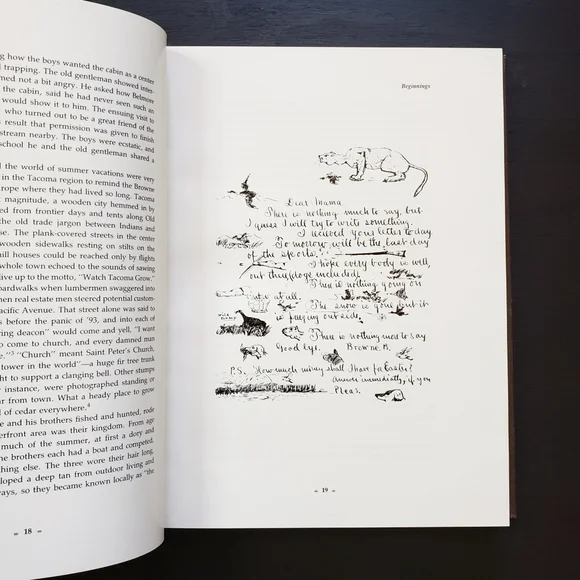 ng how the boys wanted the cabin as a center
d trapping. The old gentleman showed inten-
med not a bit angry. He asked how Belmore
the cabin, said he had never seen such an
would show it to him. The ensuing visit to
who turned out to be a great friend of the
result that permission was given to finish
stream nearby. The boys were ecstatic, and
school he and the old gentleman shared a
d the world of summer vacations were very
in the Tacoma region to remind the Browne
rope where they had lived so long. Tacoma
magnitude, a wooden city hemmed in by
ed from frontier days and tents along Old
the old trade jargon between Indians and
se. The plank-covered streets in the center
wooden sidewalks resting on stilts on the
hill houses could be reached only by flights
whole town echoed to the sounds of sawing
live up to the motto, "Watch Tacoma Grow."
oardwalks when lumbermen swaggered into
en real estate men steered potential custom-
acific Avenue. That street alone was said to
s before the panic of '93, and into each of
ring deacon" would come and yell, "I want
o come to church, and every damned man
e."3 "Church" meant Saint Peter's Church,
tower in the world"—a huge fir tree trunk
ght to support a clanging bell. Other stumps
r instance, were photographed standing or
ar from town. What a heady place to grow
l of cedar everywhere.4
e and his brothers fished and hunted, rode
erfront area was their kingdom. From age
much of the summer, at first a dory and
he brothers each had a boat and competed,
thing else. The three wore their hair long,
loped a deep tan from outdoor living and
ways, so they became known locally as "the
18
Beginnings
Dear Mama
There is nothing much to say, but
I guess I will try to write something.
I recieved your letter to day
To morrow will be the last day
of the sports.
I hope every body is well,
out
included.
There is nothing going on
at all.
The snow is gone but it
is
out side.
WILD
There is nothing more to say
Good bye. Browne. B.
P.S. How much money shall I have for Easter?
Answer immediately, if you
Pleas.
19